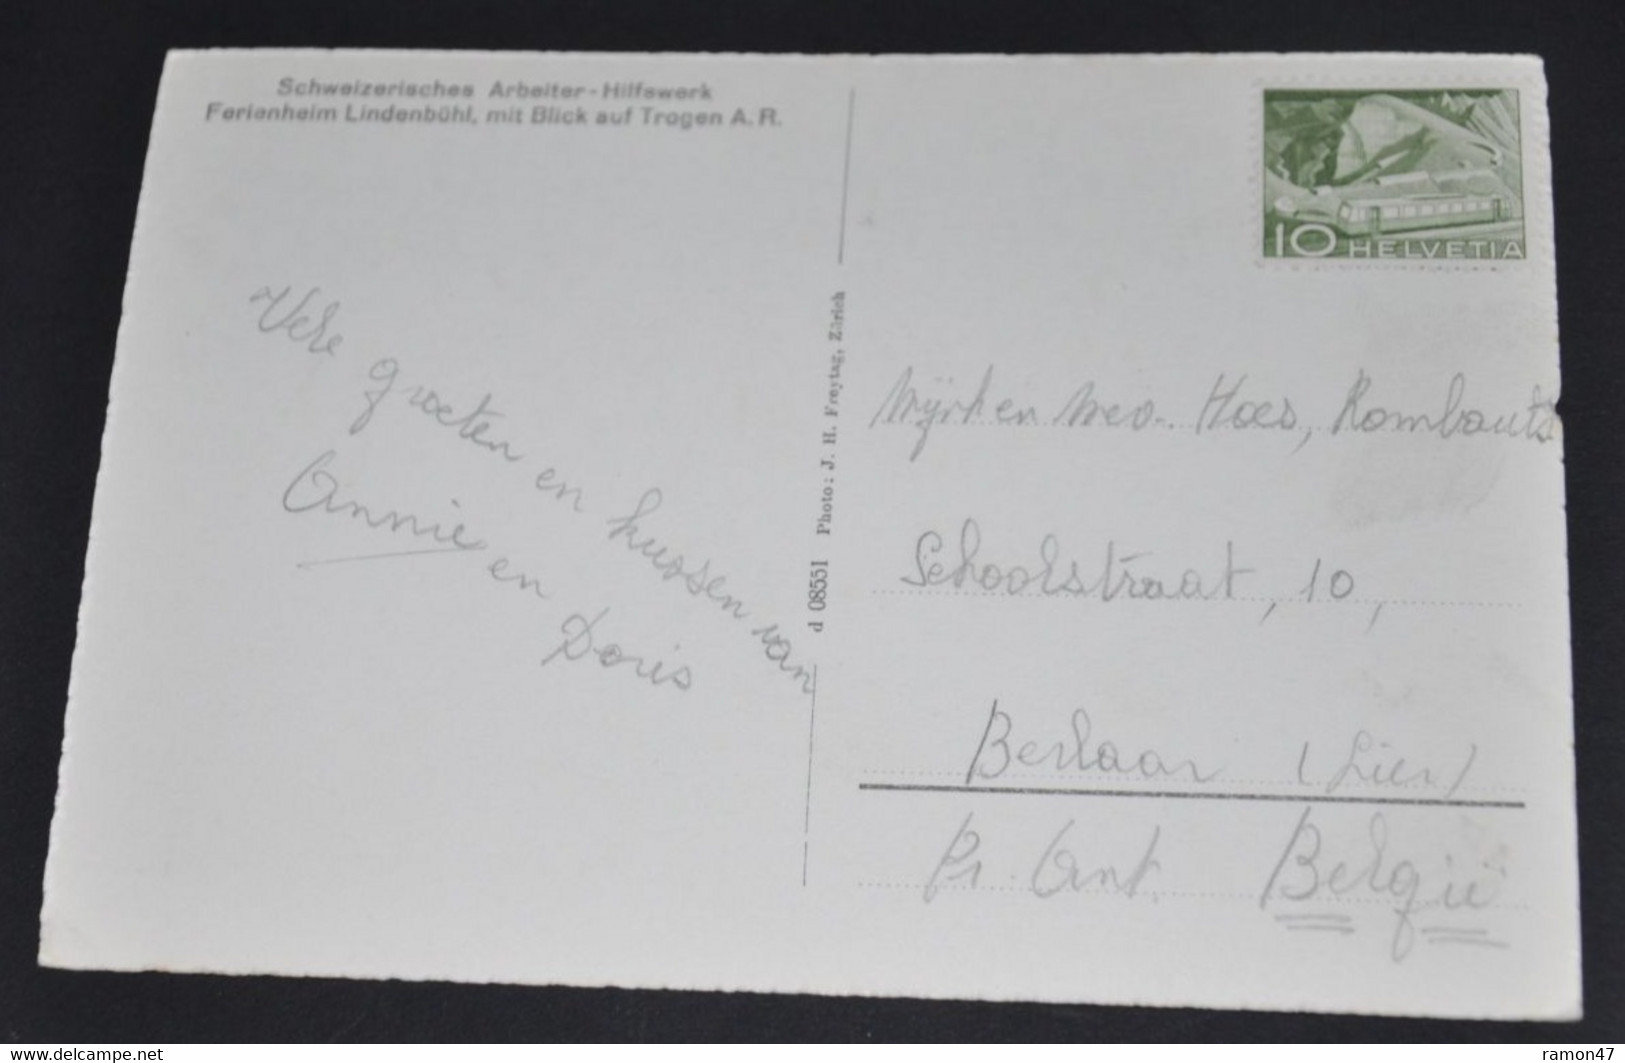 Schweizerisches Arbeiter-Hilfswerk
Ferienheim Lindenbühl, mit Blick auf Trogen A.R.
10 HELVETIA
Vele groeten en kussen van
Annie en Doris
d 08551 Photo: J. H. Freytag, Zürich
en Mev. Hoes, Rombouts
Schoolstraat, 10,
Berlaar (Lier)
Pr. Ant. België
www.delcampe.net
ramon47